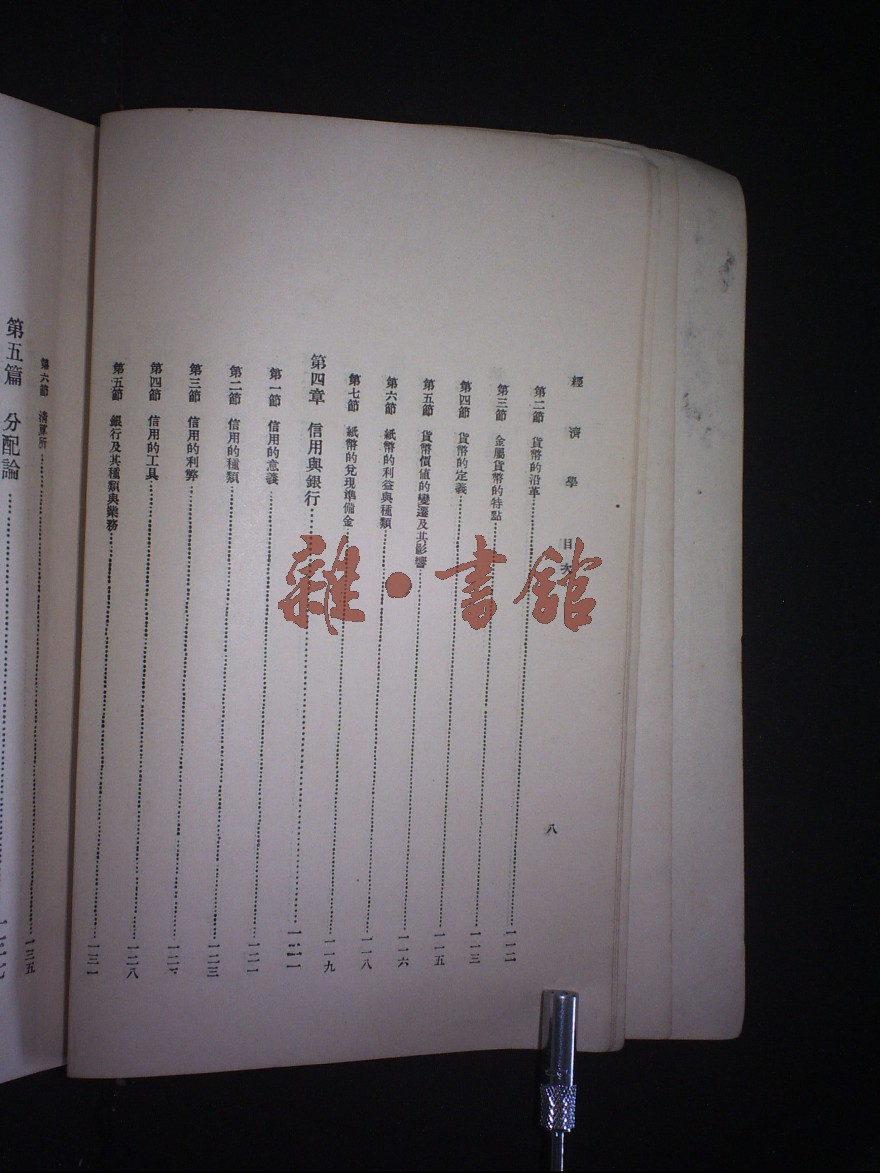 經濟學 目次 八
第二節 貨幣的沿革 一一二
第三節 金屬貨幣的特點 一一三
第四節 貨幣的定義 一一五
第五節 貨幣價值的變遷及其影響 一一六
第六節 紙幣的利益與種類 一一八
第七節 紙幣的兌現準備金 一一九
第四章 信用與銀行 一二一
第一節 信用的意義 一二一
第二節 信用的種類 一二三
第三節 信用的利弊
第四節 信用的工具 一二八
第五節 銀行及其種類與業務 一三一
第六節 清算所 一三五
第五篇 分配論
雜·書館